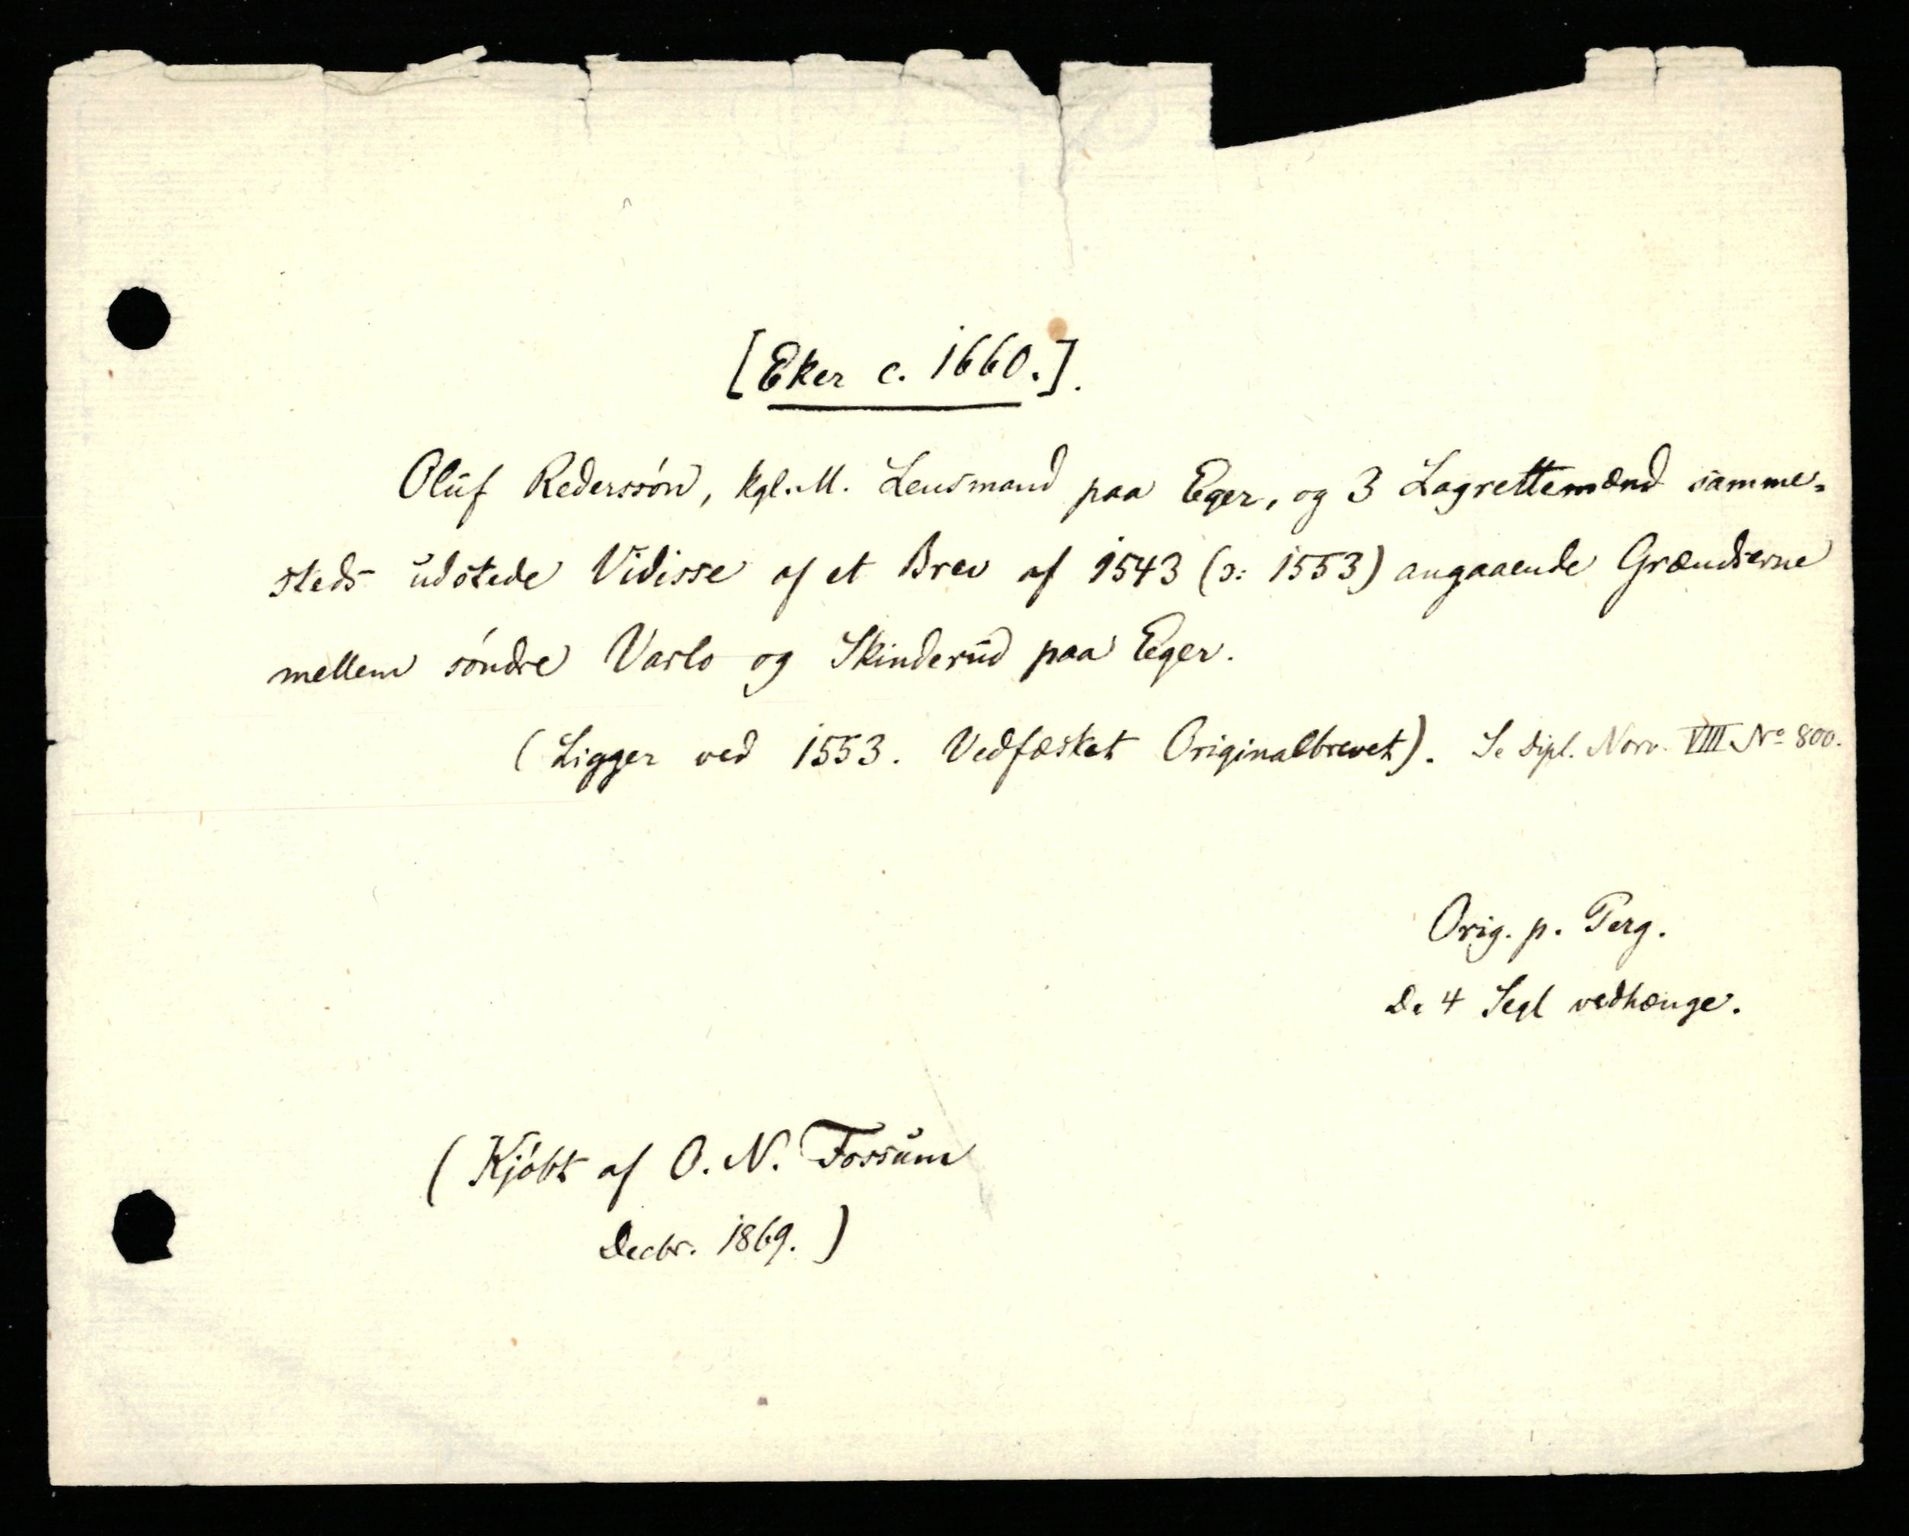 [Eker c. 1660.].
Oluf Rederssön, kgl. M. Lensmand paa Eger, og 3 Lagrettemænd samme=
steds udstede Vidisse af et Brev af 1543 (ɔ: 1553) angaaende Grændserne
mellem söndre Varlo og Skinderud paa Eger.
(Ligger ved 1553. Vedfæsket Originalbrevet). Se Dipl. Norv. VIII No 800.
Orig. p. Perg.
De 4 Segl vedhænge.
(Kjöbt af O. N. Fossum
Decbr. 1869.)